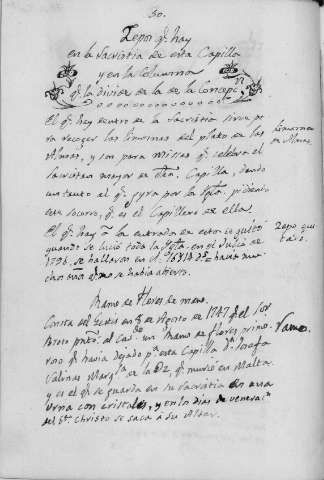 50.
Zepos q.e hay
en la Sacristia de esta Capilla
y en la Columna
q.e la divide de la de la Concep.n
El q.e hay dentro de la Sacristia sirve pa
ra recoger las limosnas del plato de las
Almas, y son para missas q.e celebra el
Sacristan mayor en Capilla, dando
un tanto al q.e gyra por la Igla. pidiendo
este socorro, q.e es el Capillero de ella.
limosna
pa. Almas.
El q.e hay a la entrada de esta se quitó
quando se lució toda la Igla. en el de
1796, se hallaron en el 16 hacia mu
chos años q.e no se habia abierto.
Zepo qui
tado.
Ramo de Flores de mano.
Consta del Gestis en 8 de Agosto de 1747 q.e el Sor
presentó al Cav.do un Ramo de Flores primo
roso q.e havia dejado pa. esta Capilla D.a Josefa
Salinas Marq.sa de la q.e murió en Malta.
y es el q.e se guarda en su Sacristia en una
urna con cristales, y en los dias de
del Sto. Christo se saca a su Altar.
Ramo.